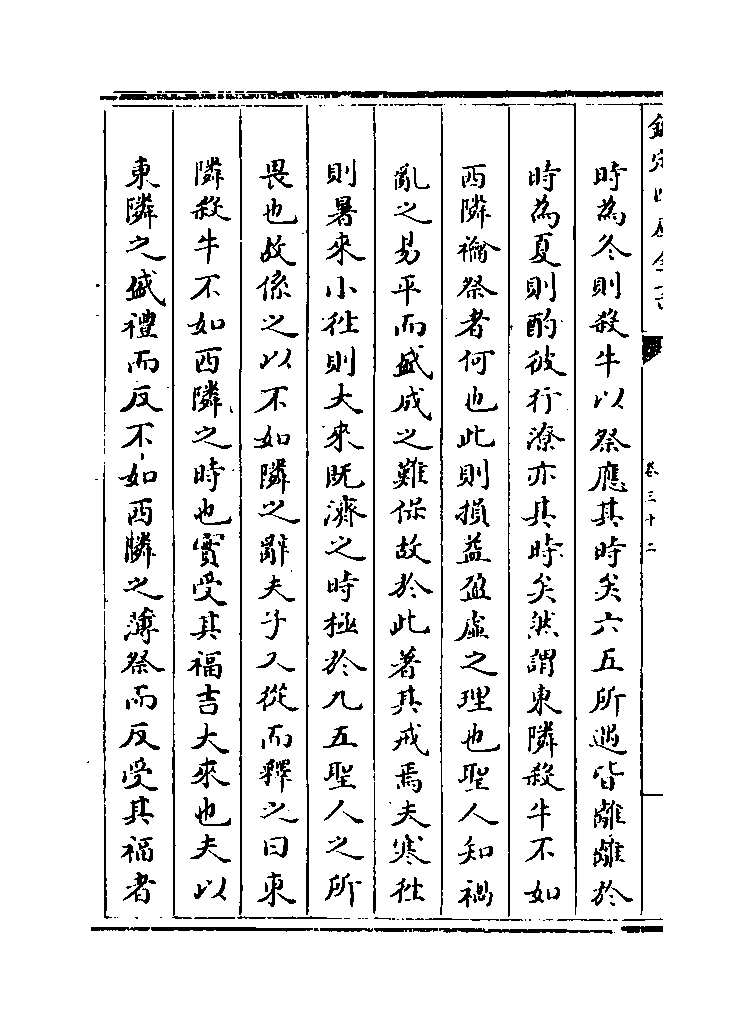 欽定四庫全書
卷三十二
時為冬則殺牛以祭應其時矣六五所遇皆離離於
時為夏則酌彼行潦亦其時矣然謂東隣殺牛不如
西隣禴祭者何也此則損益盈虛之理也聖人知禍
亂之易平而盛成之難保故於此著其戒焉夫寒徃
則暑來小徃則大來既濟之時極於九五聖人之所
畏也故係之以不如隣之辭夫子又從而釋之曰東
隣殺牛不如西隣之時也實受其福吉大來也夫以
東隣之盛禮而反不如西隣之薄祭而反受其福者